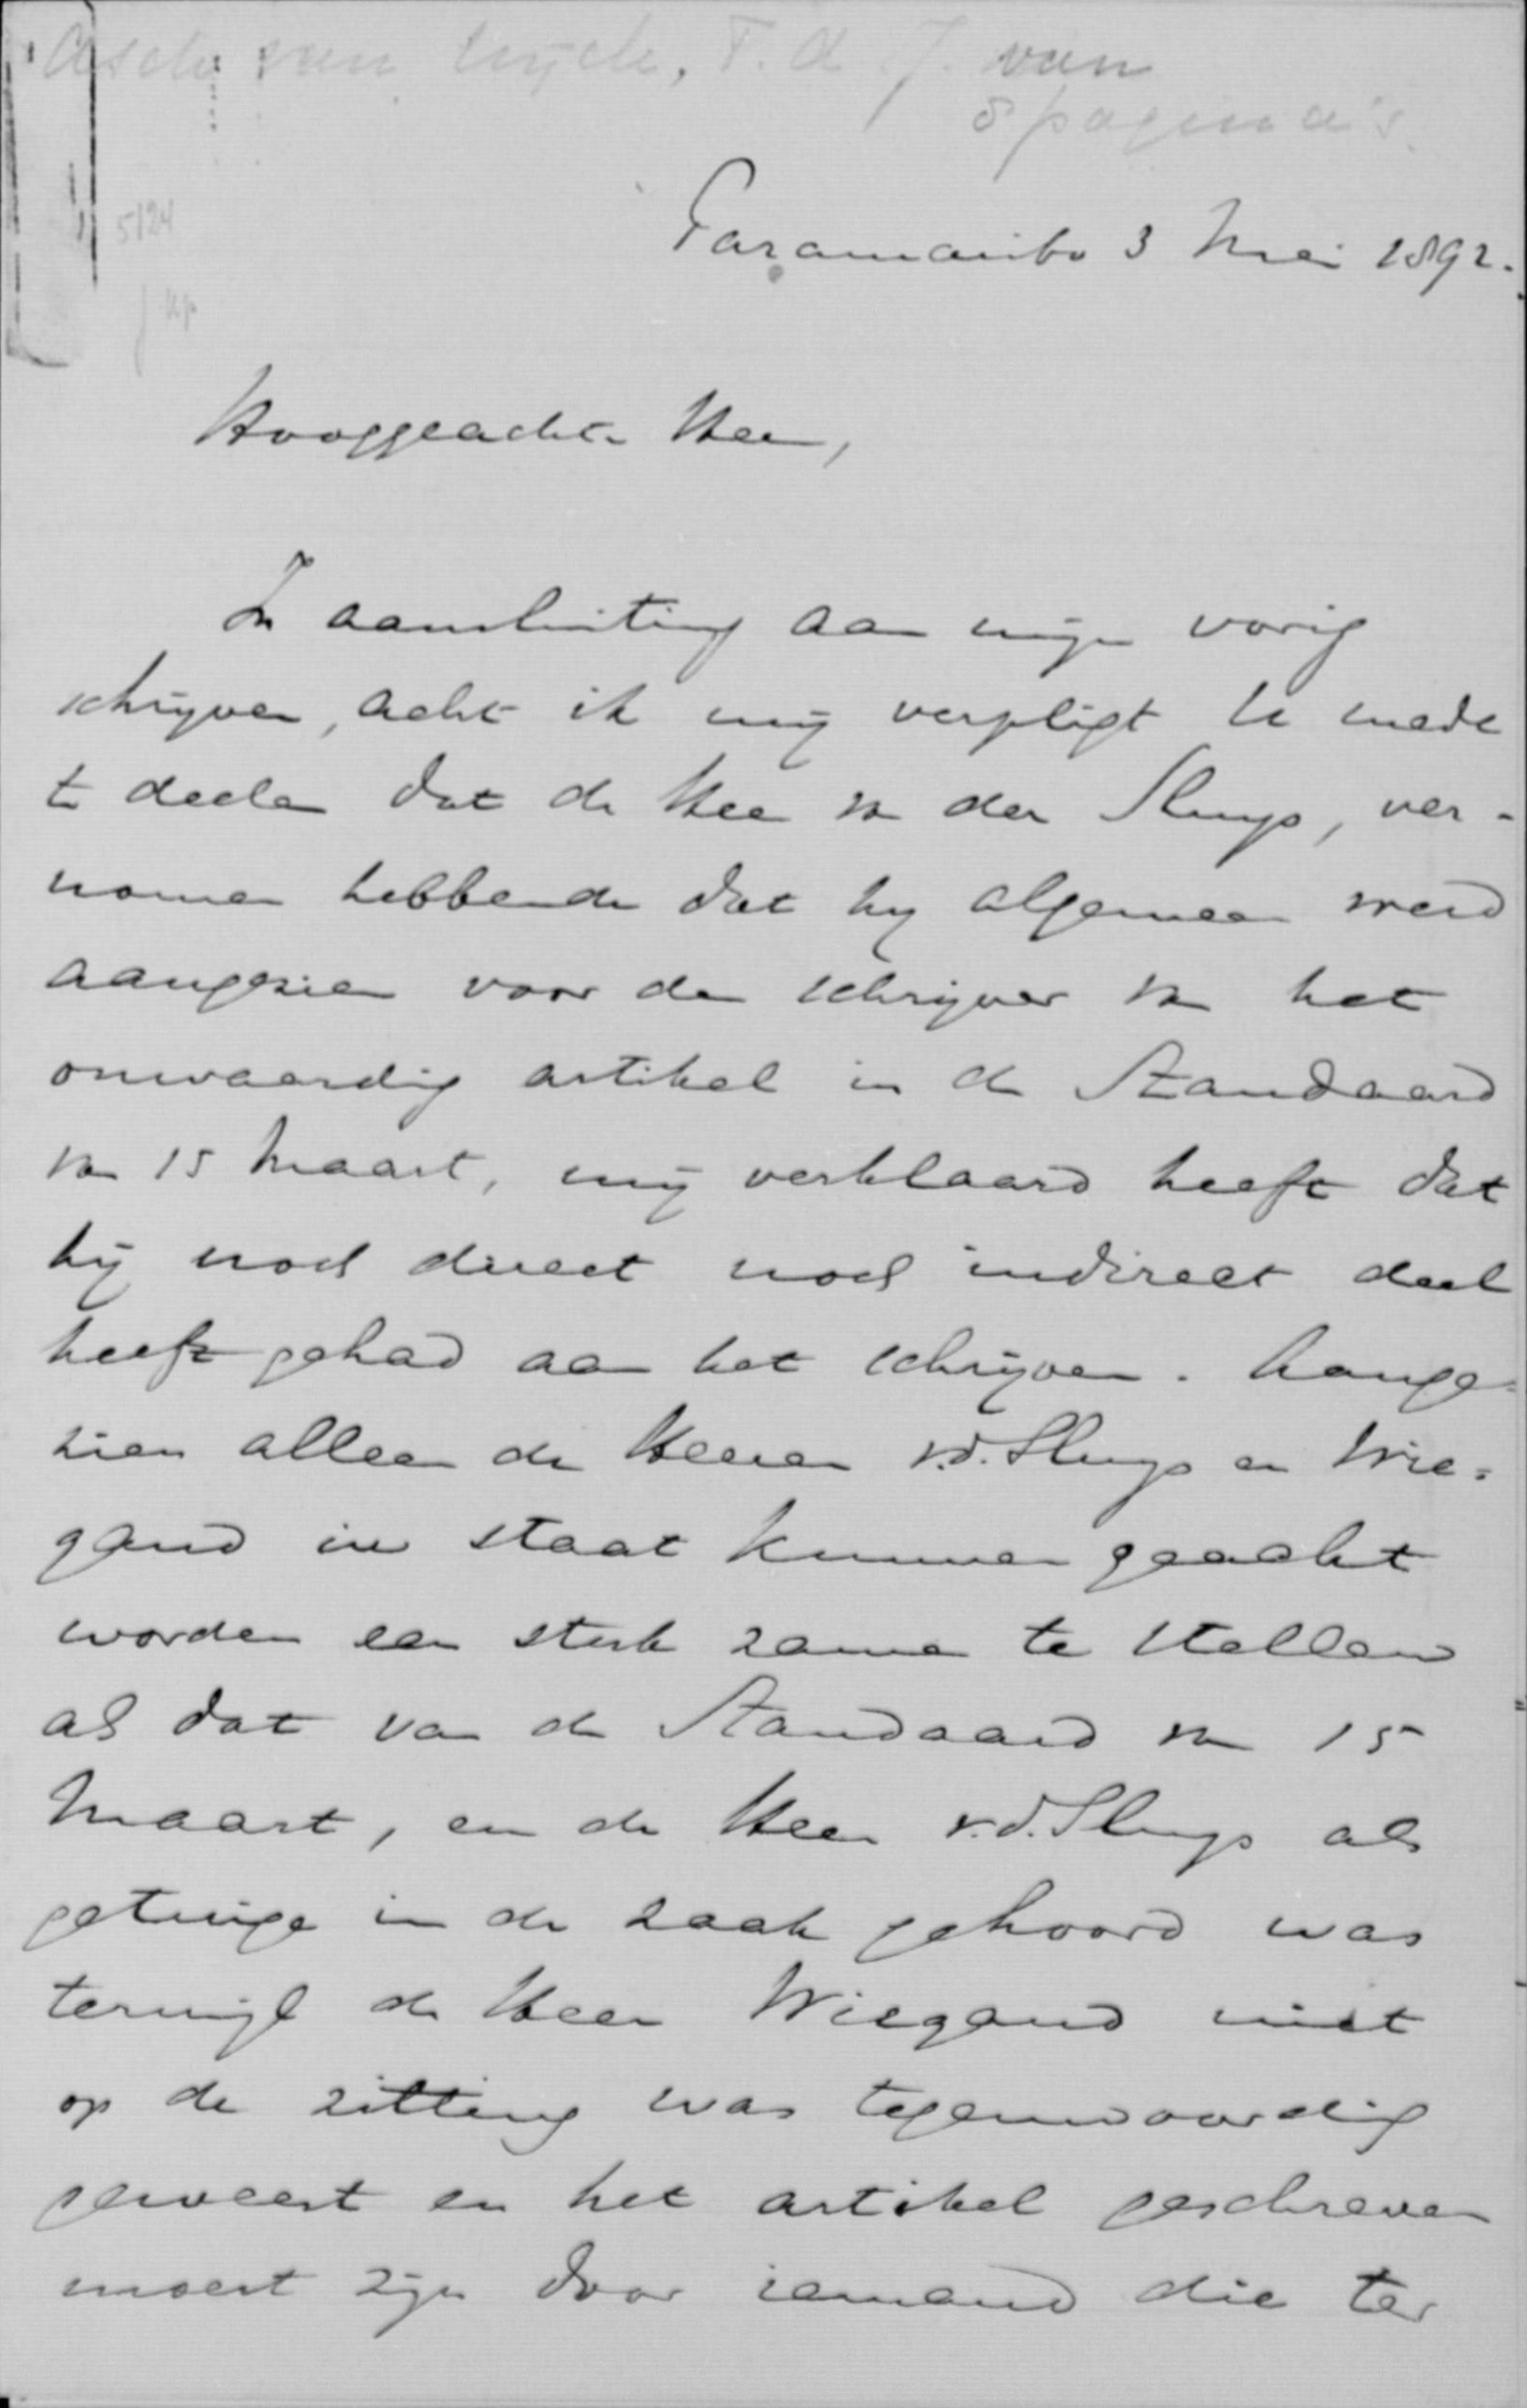 Asch van Wijck, T. A. J. van
8 pagina's
5124
Paramaribo 3 Mei 1892.
Hooggeachte Heer,
In aansluiting aan mijn vorig
schrijven, acht ik mij verpligt U mede
te deelen dat de Heer van der Sluys, ver-
nomen hebbende dat hij algemeen werd
aangezien voor den schrijver van het
onwaardig artikel in de Standaard
van 15 Maart, mij verklaard heeft dat
hij noch direct noch indirect deel
heeft gehad aan het schrijven. Aange-
zien alleen de Heeren v.d. Sluys en Wie-
gand in staat kunnen geacht
worden een stuk zamen te stellen
als dat van de Standaard van 15
Maart, en de Heer v.d. Sluys als
getuige in de zaak gehoord was
terwijl de Heer Wiegand niet
op de zitting was tegenwoordig
geweest en het artikel geschreven
moest zijn door iemand die ter